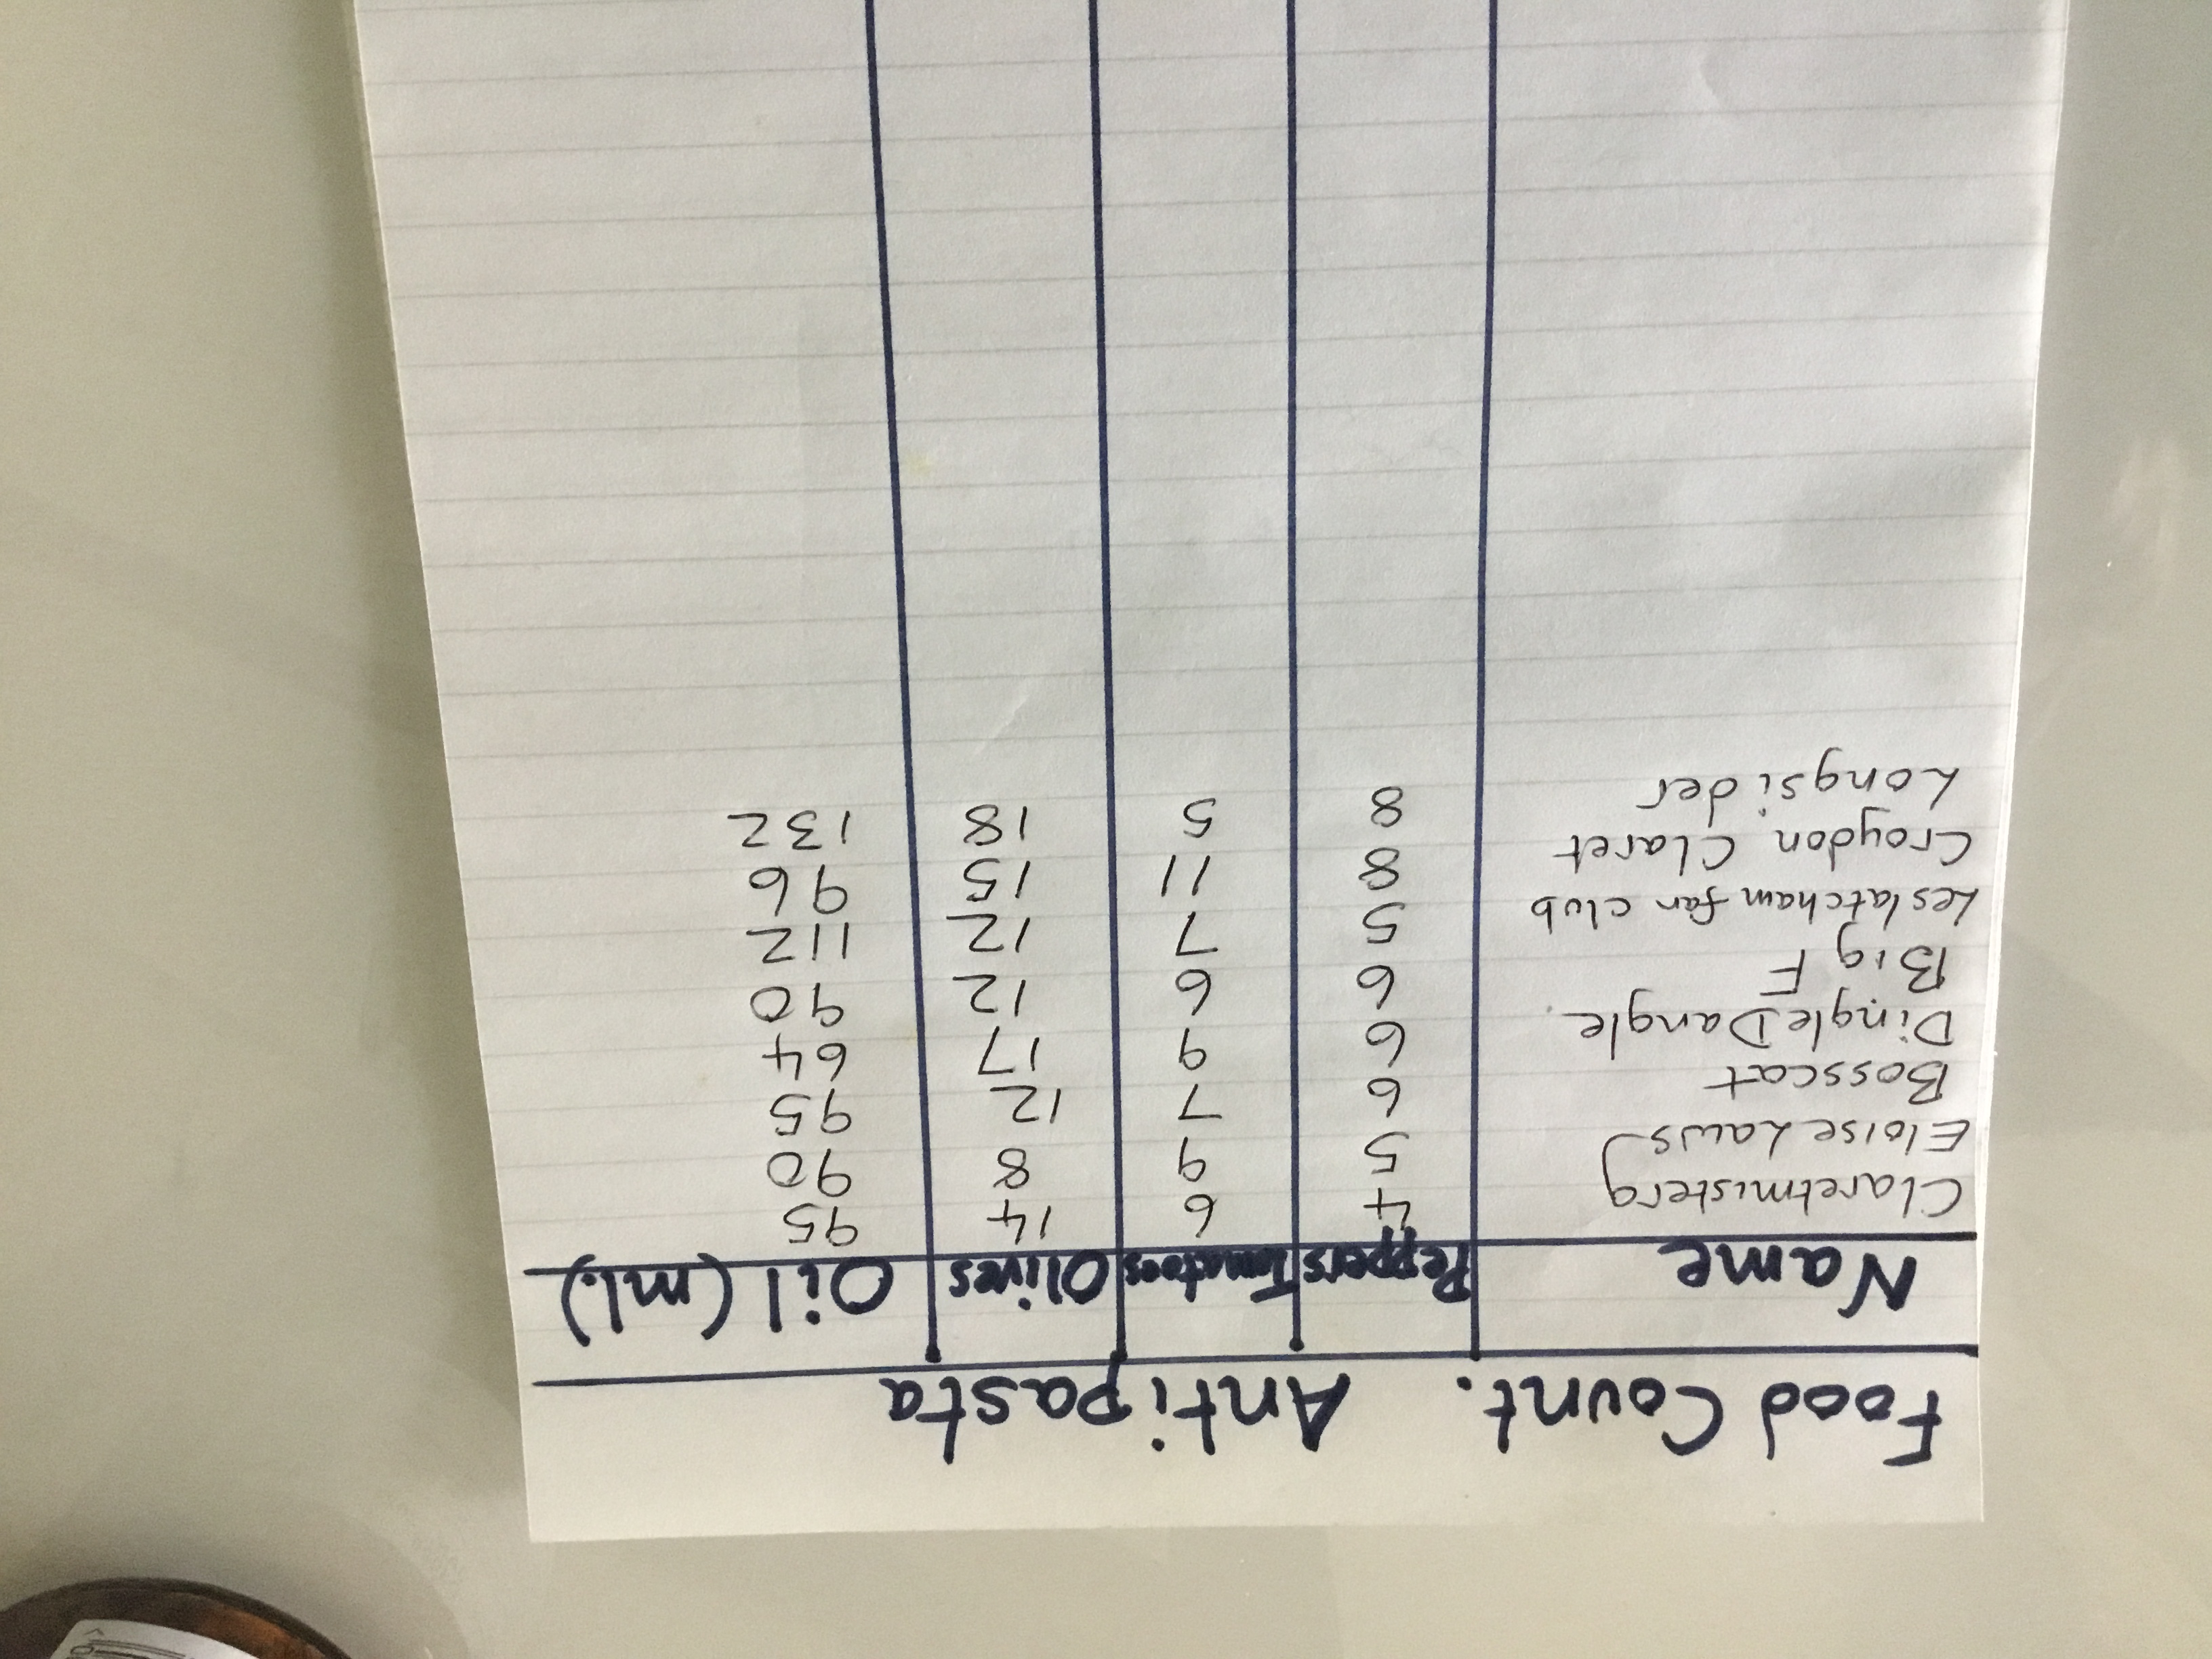 Food Count. Antipasta
Name Peppers Tomatoes Olives Oil (ml.)
Claretmisterg 4 6 14 95
Eloise Laws 5 9 8 90
Bosscat 6 7 12 95
Dingle Dangle 6 9 17 64
Big F 6 6 12 90
Leslatcham fan club 5 7 12 112
Croydon Claret 8 11 15 96
Longsider 8 5 18 132